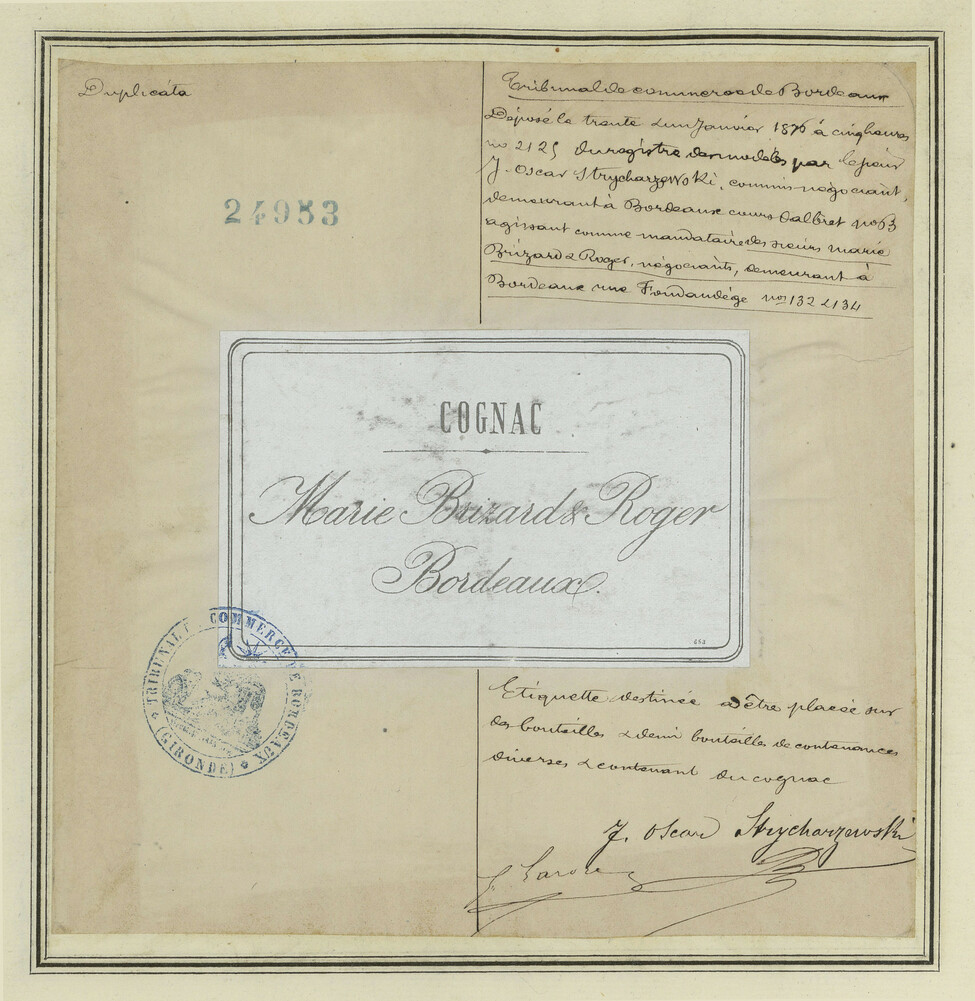 Duplicata
Tribunal de commerce de Bordeaux
Déposé le trente & un Janvier 1876 à cinq heures
no 2125 du registre des modèles par le sieur
J. Oscar Strycharzewski, commis-négociant,
demeurant à Bordeaux cours d'albret no 63
agissant comme mandataire des sieurs marie
Brizard & Roger, négociants, demeurant à
Bordeaux rue Fondaudége nos 132 & 134
24953
COGNAC
Marie Brizard & Roger
Bordeaux.
653
TRIBUNAL COMMERCE DE BORDEAUX
(GIRONDE)
Etiquette destinée à être placée sur
des bouteilles & demi bouteilles de contenances
diverses & contenant du cognac
J. Oscar Strycharzewski